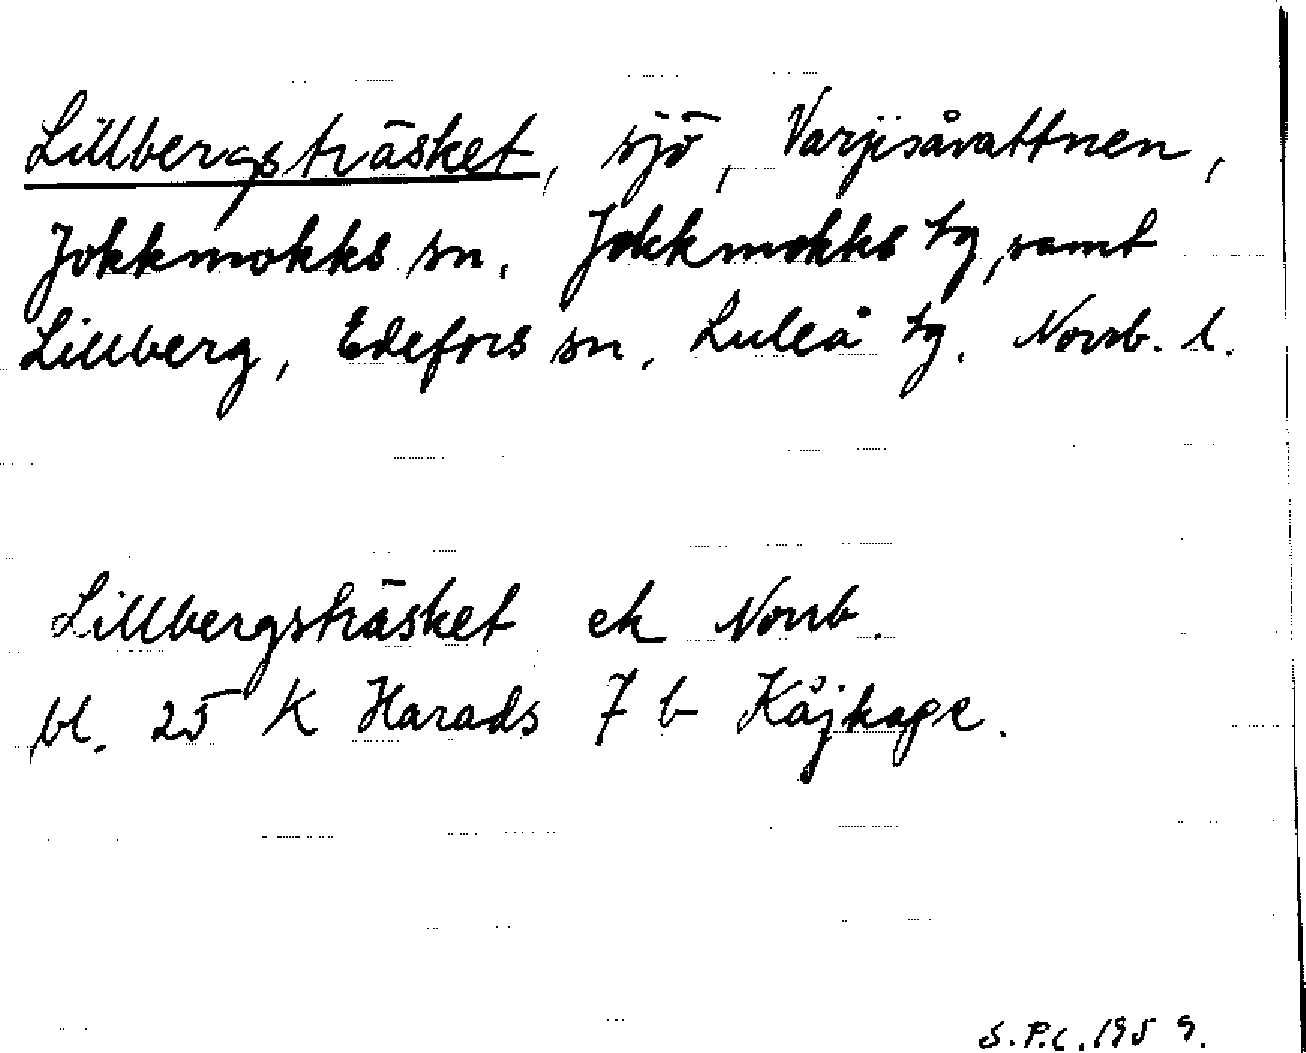 Lillbergsträsket, sjö, Varjisåvattnen,
Jokkmokks sn, Jokkmokks tg, samt
Lillberg, Edefors sn, Luleå tg. Norrb. l.
Lillbergsträsket ek Norrb.
bl. 25 K Harads 7 b Kåjkape.
S.P.C. 1959.